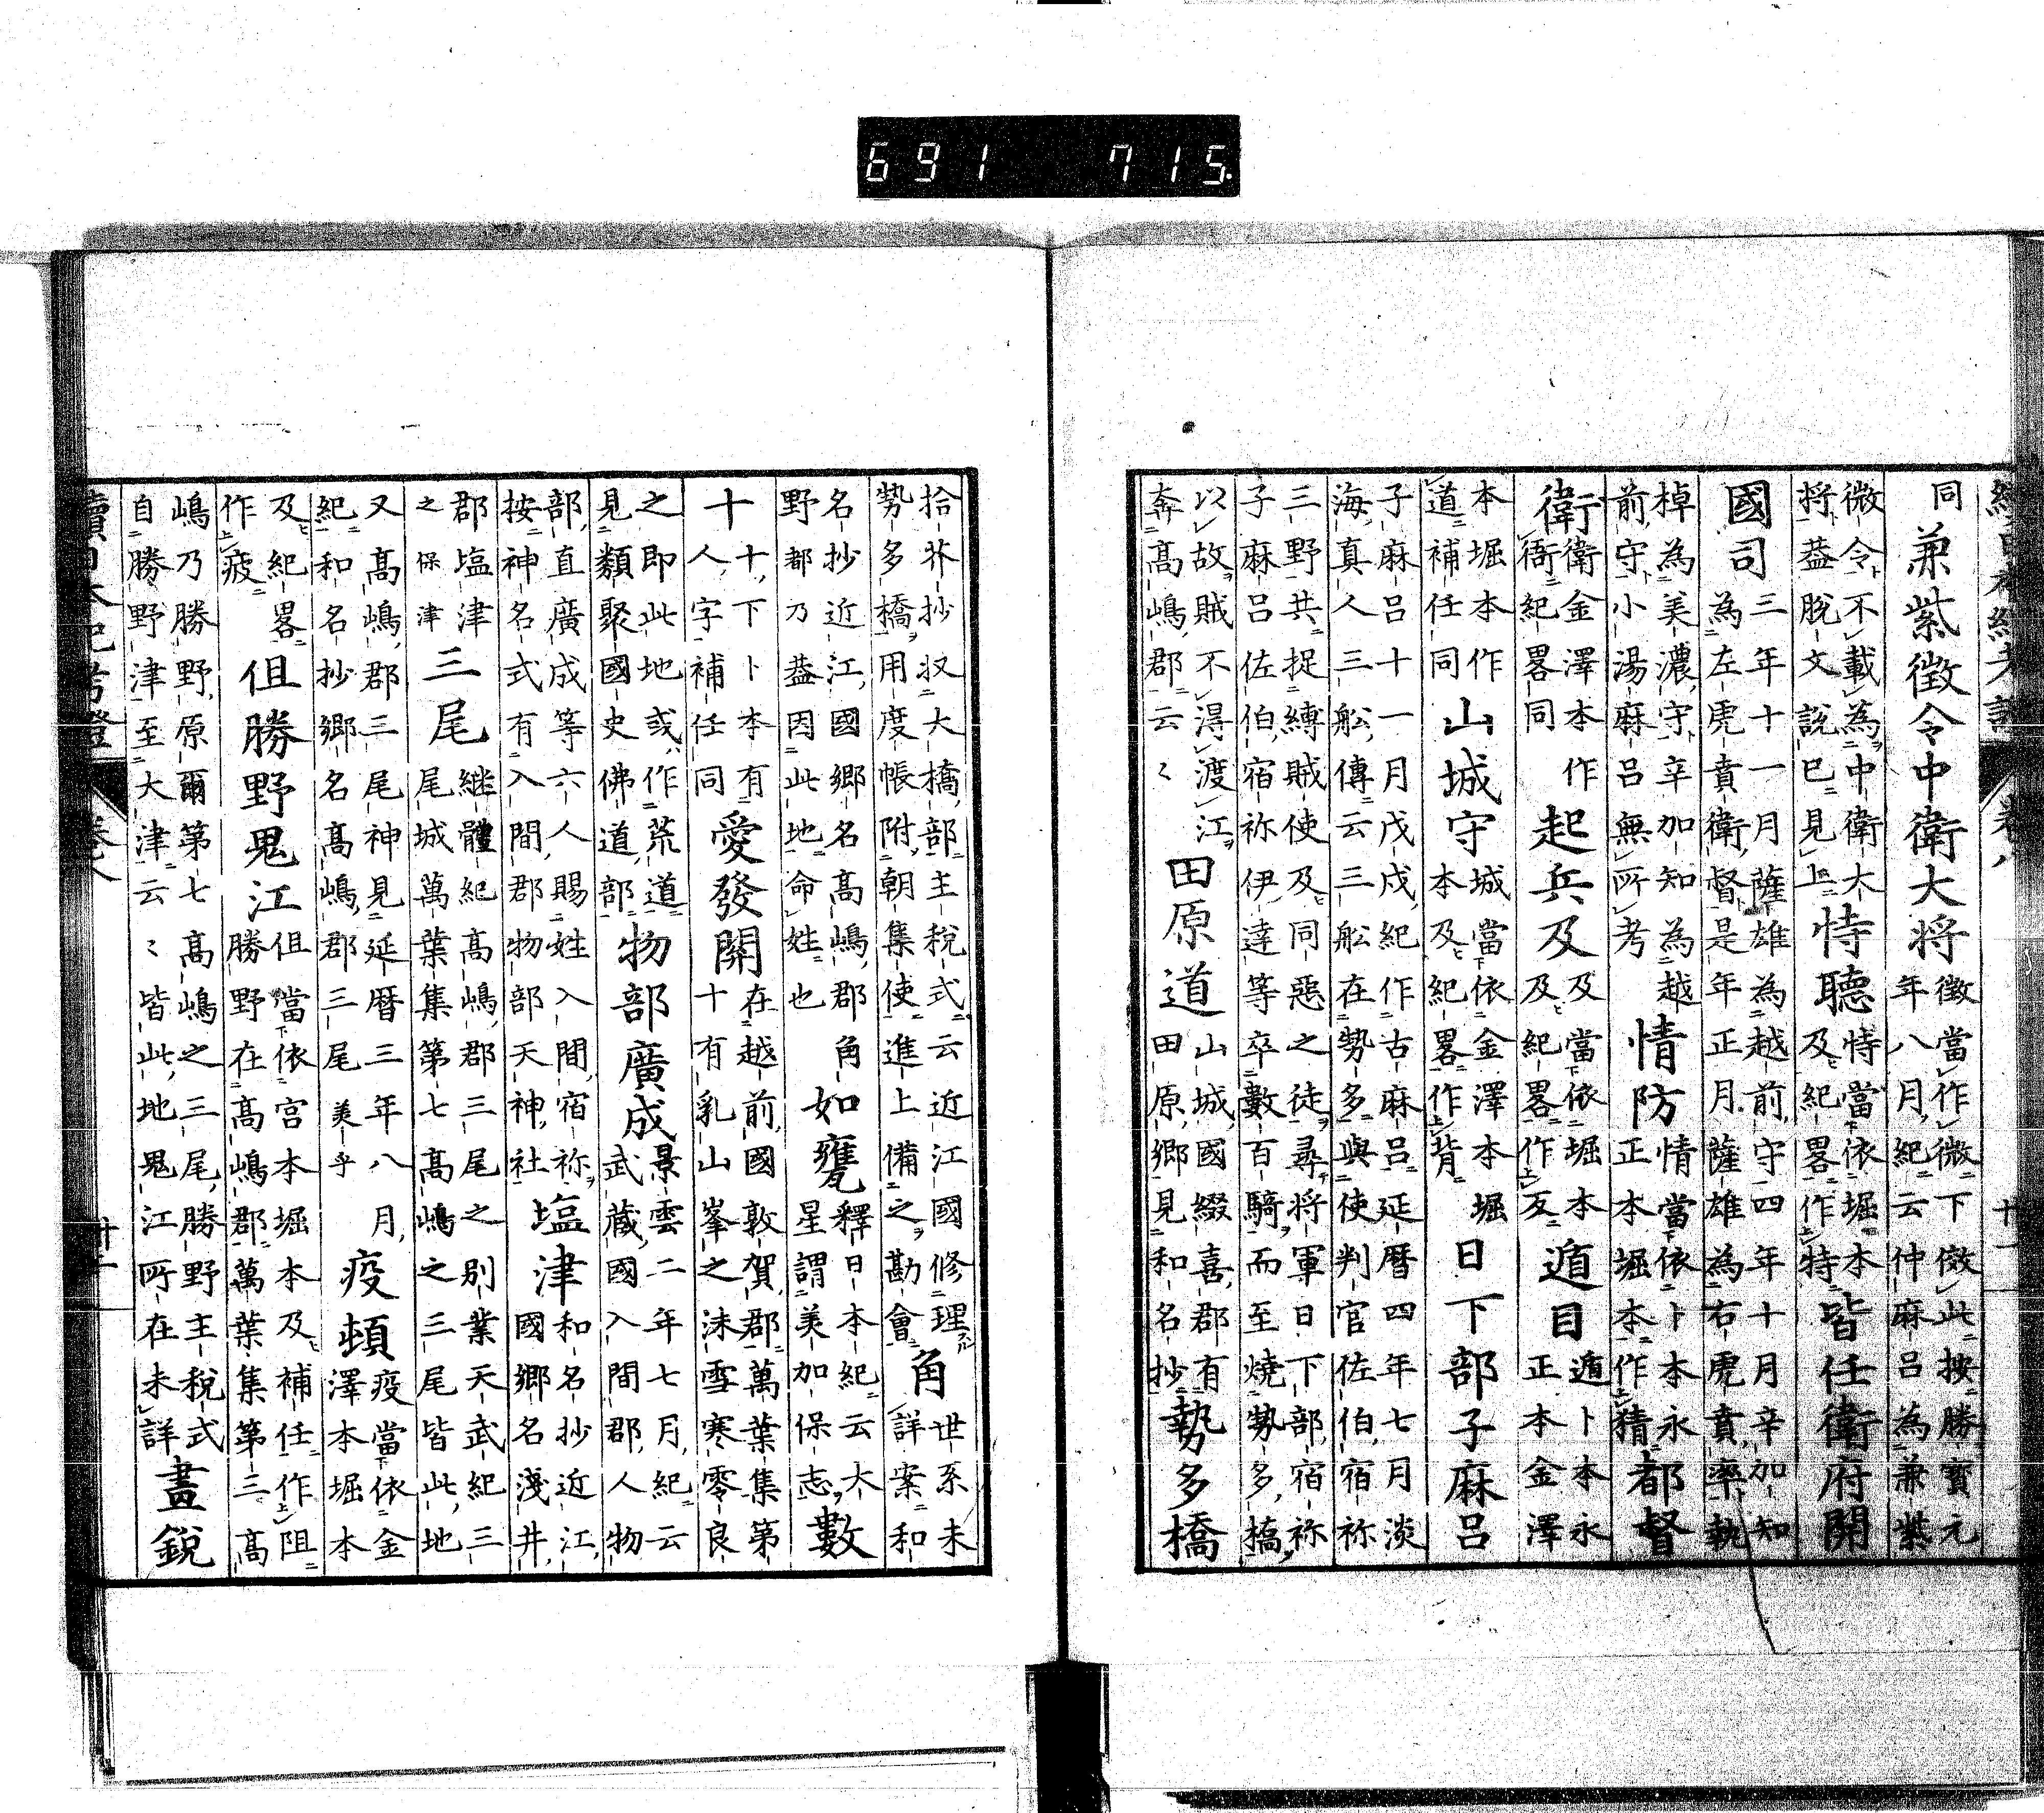 同
兼紫徵令中衛大将
徵當作微下傚此按勝寶元
年八月紀云仲麻呂為兼紫
微令不載為中衛大
将葢脫文說已見上
恃聽
恃當依堀本
及紀畧作特
皆任衛府開
國司
三年十一月薩雄為越前守四年十月辛加知
為左虎賁衛督是年正月薩雄為右虎賁率執
棹為美濃守辛加知為越
前守小湯麻呂無所考
情防
情當依卜本永
正本堀本作猜
都督
衛
衛金澤本作
衙紀畧同
起兵及
及當依堀本
及紀畧作反
遁目
遁卜本永
正本金澤
本堀本作
道補任同
山城守
城當依金澤本堀
本及紀畧作背
日下部子麻呂
子麻呂十一月戊戌紀作古麻呂延暦四年七月淡
海真人三舩傳云三舩在勢多與使判官佐伯宿祢
三野共捉縛賊使及同惡之徒尋将軍日下部宿祢
子麻呂佐伯宿祢伊達等卒數百騎而至燒勢多橋
以故賊不淂渡江
奔髙嶋郡云〻
田原道
山城國綴喜郡有
田原鄉見和名抄
勢多橋
拾芥抄収大橋部主稅式云近江國修理
勢多橋用度帳附朝集使進上備之勘會
角
世系未
詳案和
名抄近江國鄉名髙嶋郡角
野都乃葢因此地命姓也
如甕
釋日本紀云大
星謂美加保志
數
十
十下卜本有
人字補任同
愛發關
在越前國敦賀郡萬葉集第
十有乳山峯之沫雪寒零良
之即此地或作荒道
見類聚國史佛道部
物部廣成
景雲二年七月紀云
武藏國入間郡人物
部直廣成等六人賜姓入間宿祢
按神名式有入間郡物部天神社
塩津
和名抄近江
國鄉名淺井
郡塩津
之保津
三尾
継體紀髙嶋郡三尾之別業天武紀三
尾城萬葉集第七髙嶋之三尾皆此地
又髙嶋郡三尾神見延暦三年八月
紀和名抄鄉名髙嶋郡三尾美乎
疫頓
疫當依金
澤本堀本
及紀畧
作疲
伹勝野鬼江
伹當依宮本堀本及補任作阻
勝野在髙嶋郡萬葉集第三髙
嶋乃勝野原爾第七髙嶋之三尾勝野主稅式
自勝野津至大津云〻皆此地鬼江所在未詳
盡銳